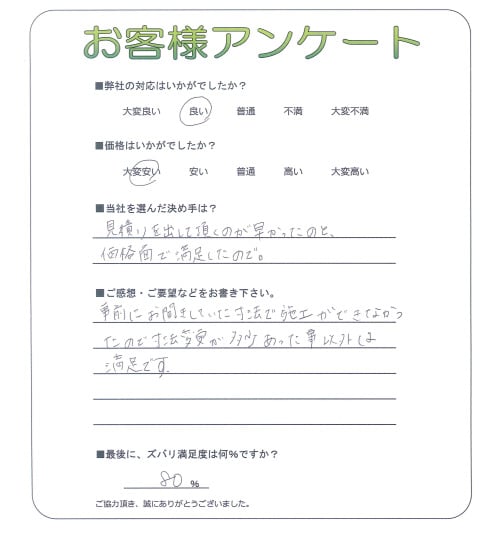 お客様アンケート
■弊社の対応はいかがでしたか？
大変良い 良い 普通 不満 大変不満
■価格はいかがでしたか？
大変安い 安い 普通 高い 大変高い
■当社を選んだ決め手は？
見積りを出して頂くのが早かったのと、
価格面で満足したので。
■ご感想・ご要望などをお書き下さい。
事前にお聞きしていた寸法で施工ができなかっ
たので寸法変更が多少あった事以外は
満足です
■最後に、ズバリ満足度は何%ですか？
80 %
ご協力頂き、誠にありがとうございました。